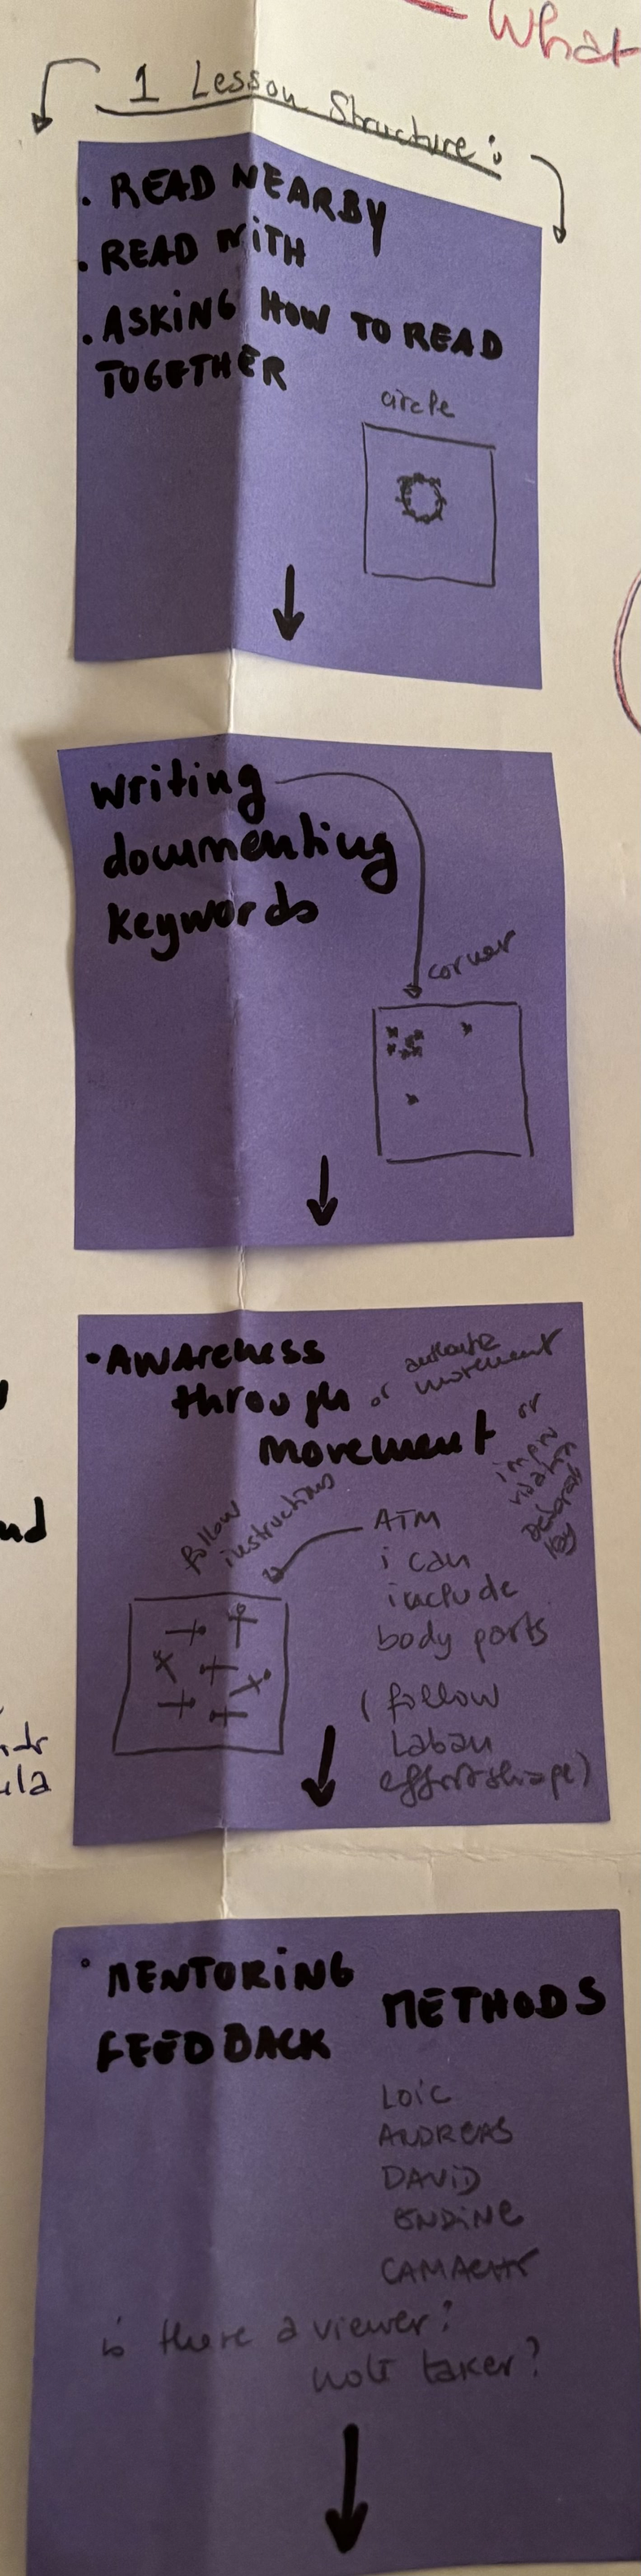 What
1 Lesson Structure:
• READ NEARBY
• READ WITH
• ASKING HOW TO READ
TOGETHER
circle
writing
documenting
keywords
corner
• AWAReNess
through
movement
or authentic
movement
or
impro
follow
instructions
ATM
i can
include
body parts
(follow
Laban
effort shape)
nd
ula
• MENTORING
FEEDBACK
METHODS
LOIC
ANDREAS
DAVID
is there a viewer?
note taker?